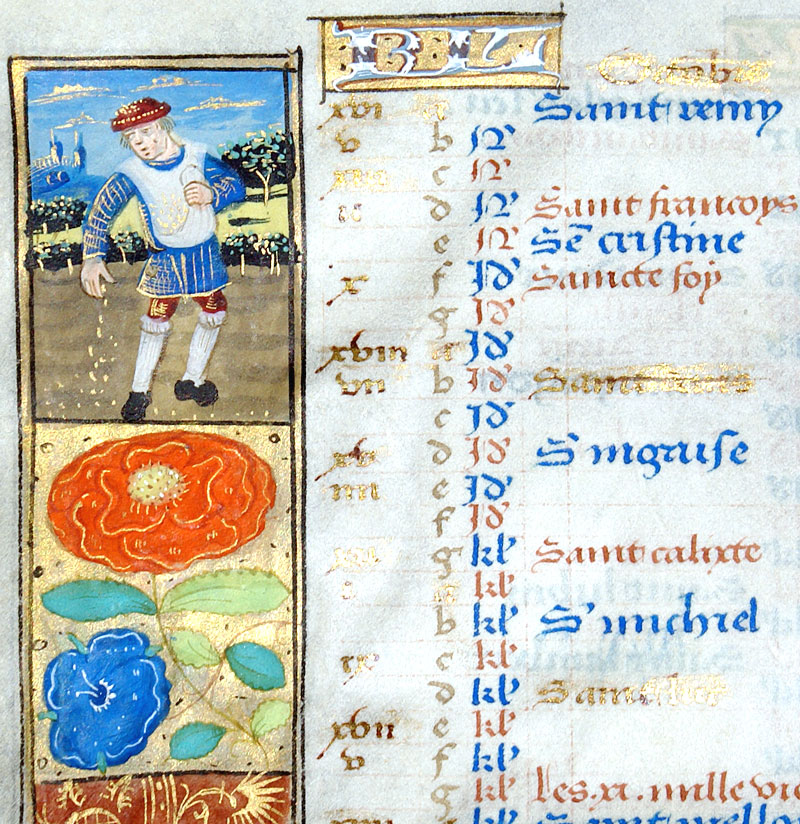 KBL
Octobre
xvi a Saint remy
v b N
xiii c N
ii d N Saint francoys
e N Se cristine
x f Id Saincte foy
g Id
xviii a Id
vii b Id Saint denis
c Id
xv d Id S nigaise
iiii e Id
f Id
xii g kl Saint calixte
i a kl
b kl S michiel
ix c kl
d kl Saint luc
xvii e kl
v f kl
g kl Les .xi. mille vie